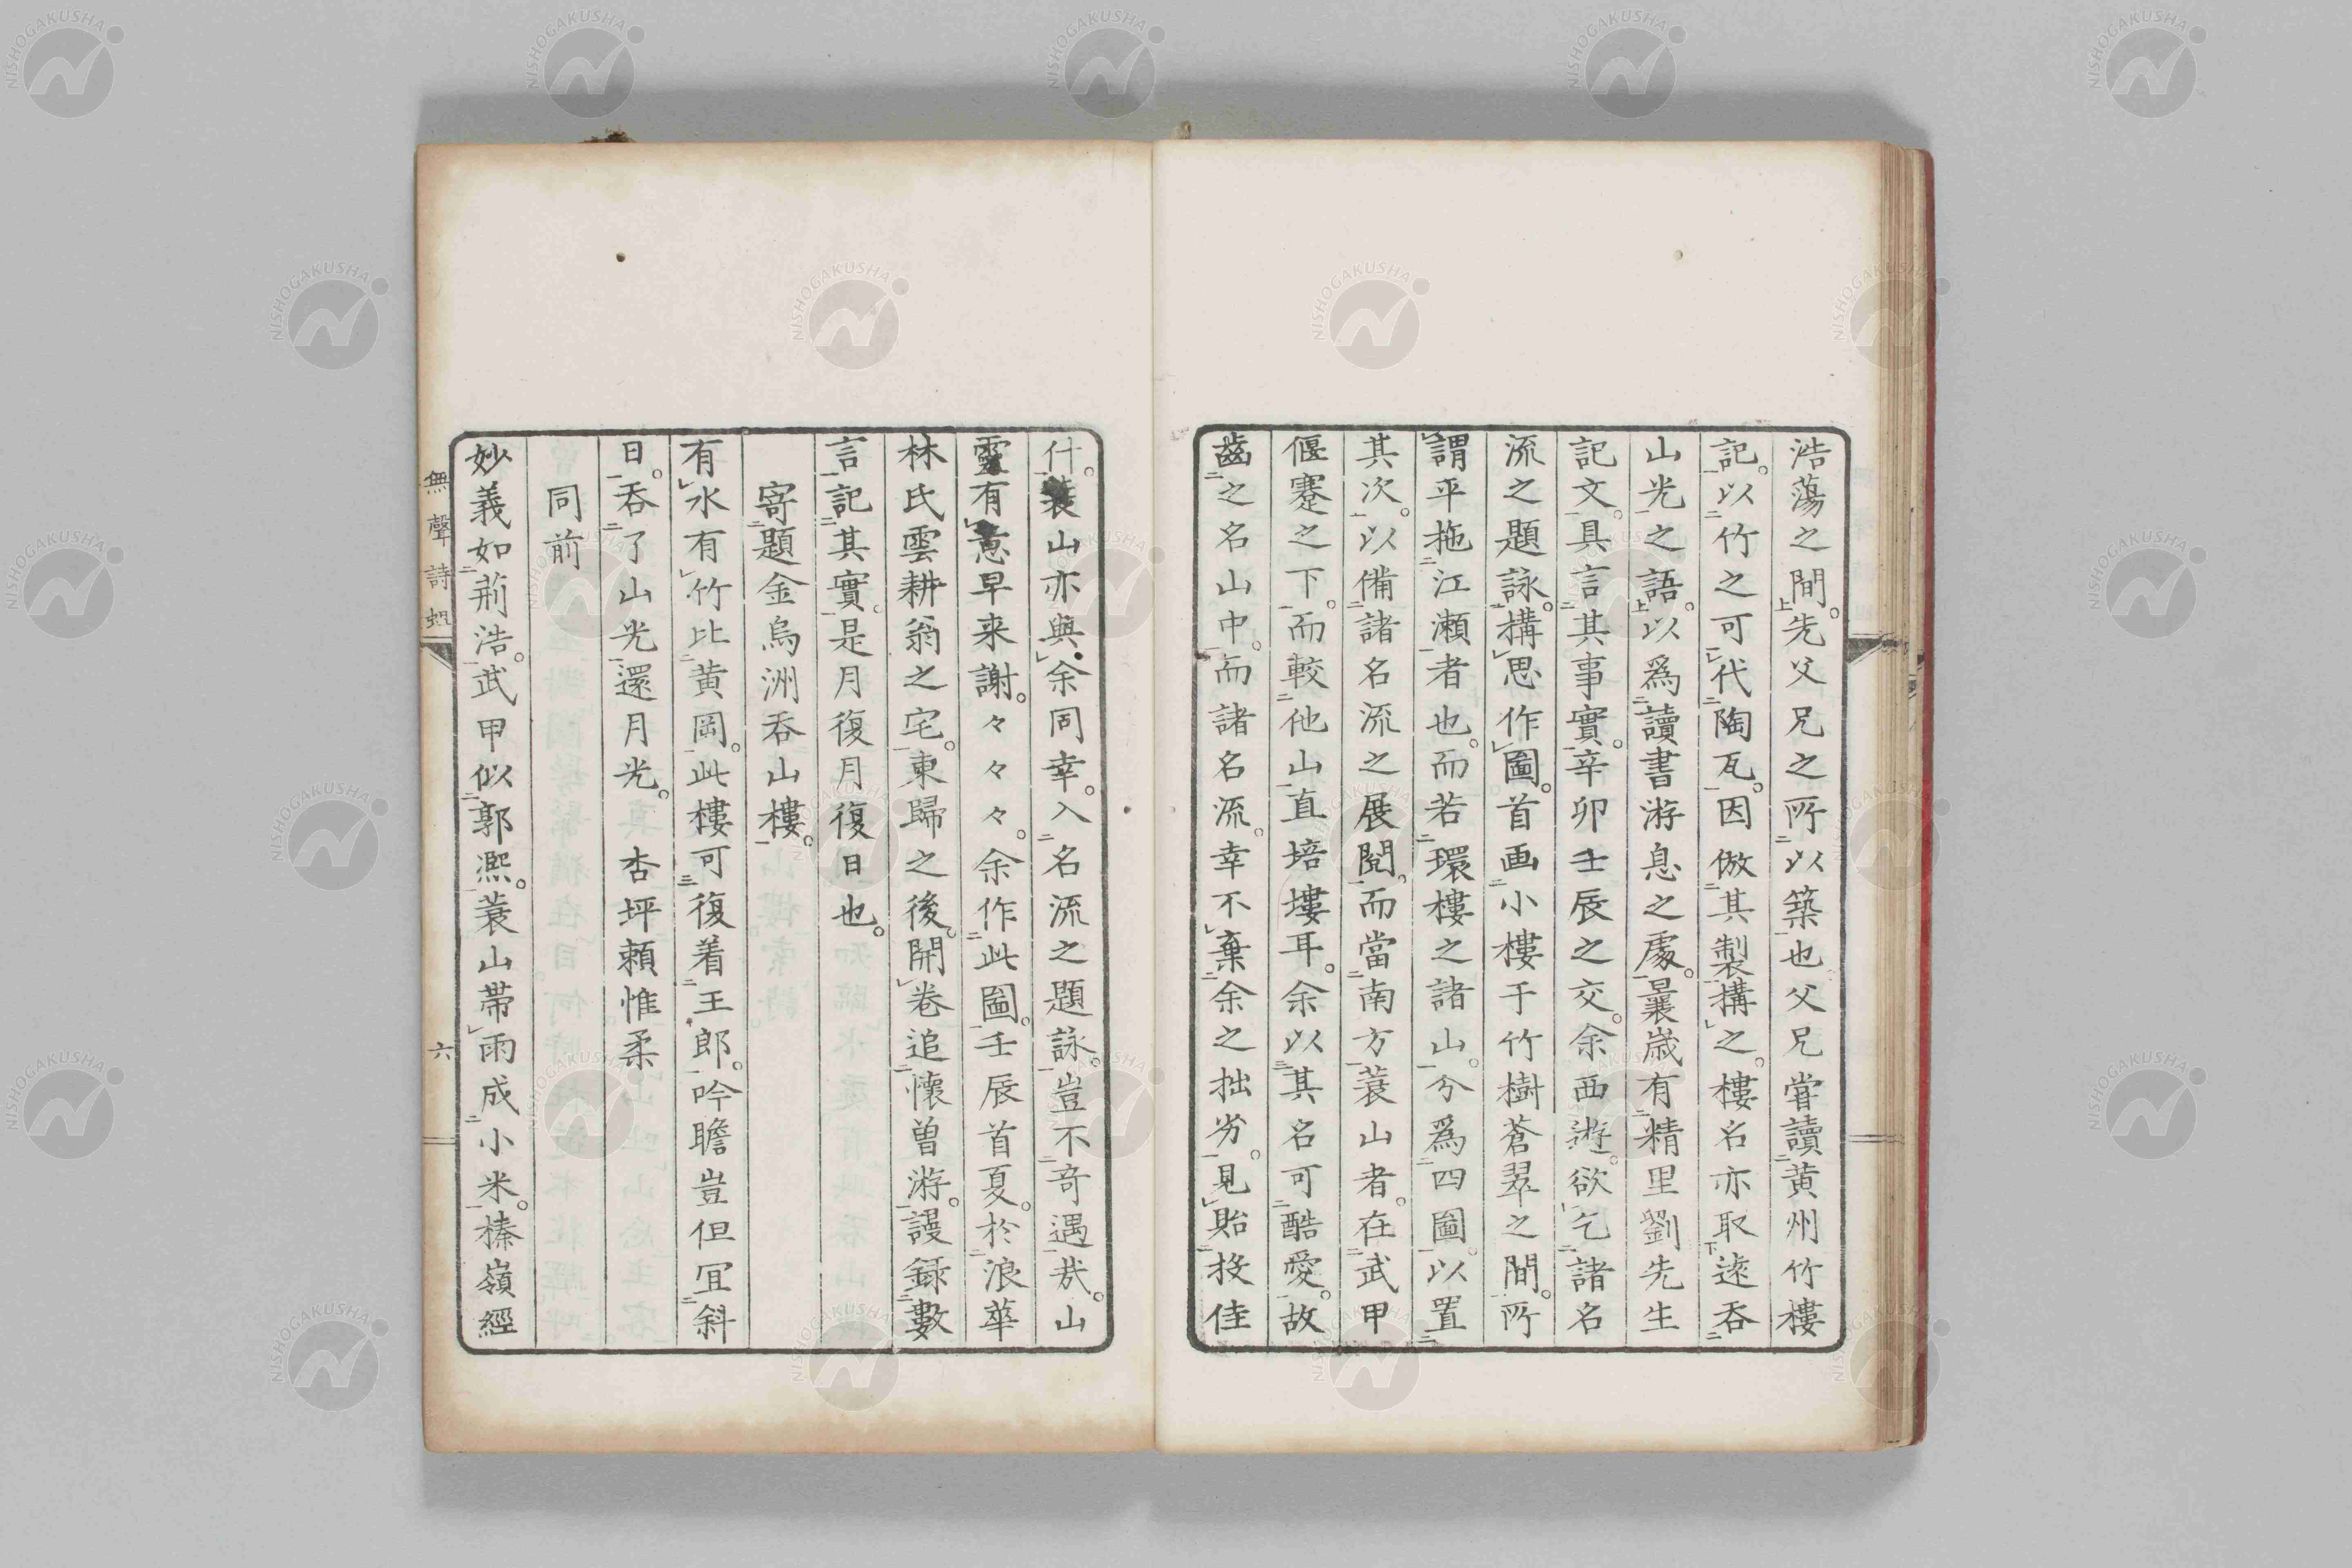 浩蕩之間。先父兄之所以築也父兄嘗讀黄州竹樓
記。以竹之可代陶瓦。因倣其製構之。樓名亦取遠吞
山光之語。以爲讀書游息之處。曩歳有精里劉先生
記文。具言其事實。辛卯壬辰之交。余西遊。欲乞諸名
流之題詠。構思作圖。首画小樓于竹樹蒼翠之間。所
謂平拖江瀬者也。而若環樓之諸山。分爲四圖。以置
其次。以備諸名流之展閲。而當南方蓑山者。在武甲
偃蹇之下。而較他山直培塿耳。余以其名可酷愛。故
齒之名山中。而諸名流。幸不棄余之拙劣。見貽投佳
什。蓑山亦與余同幸。入名流之題詠。豈不奇遇哉。山
靈有意早来謝。々々々。余作此圖。壬辰首夏。於浪華
林氏雲耕翁之宅。東歸之後。開卷追懷曽游。謾録數
言記其實。是月復月復日也。
寄題金烏洲吞山樓。
有水有竹比黄岡。此樓可復着王郎。吟瞻豈但冝斜
日。吞了山光還月光。 杏坪頼惟柔
同前
妙義如荊浩。武甲似郭熙。蓑山帶雨成小米。榛嶺經
無聲詩
六
NISHOGAKUSHA